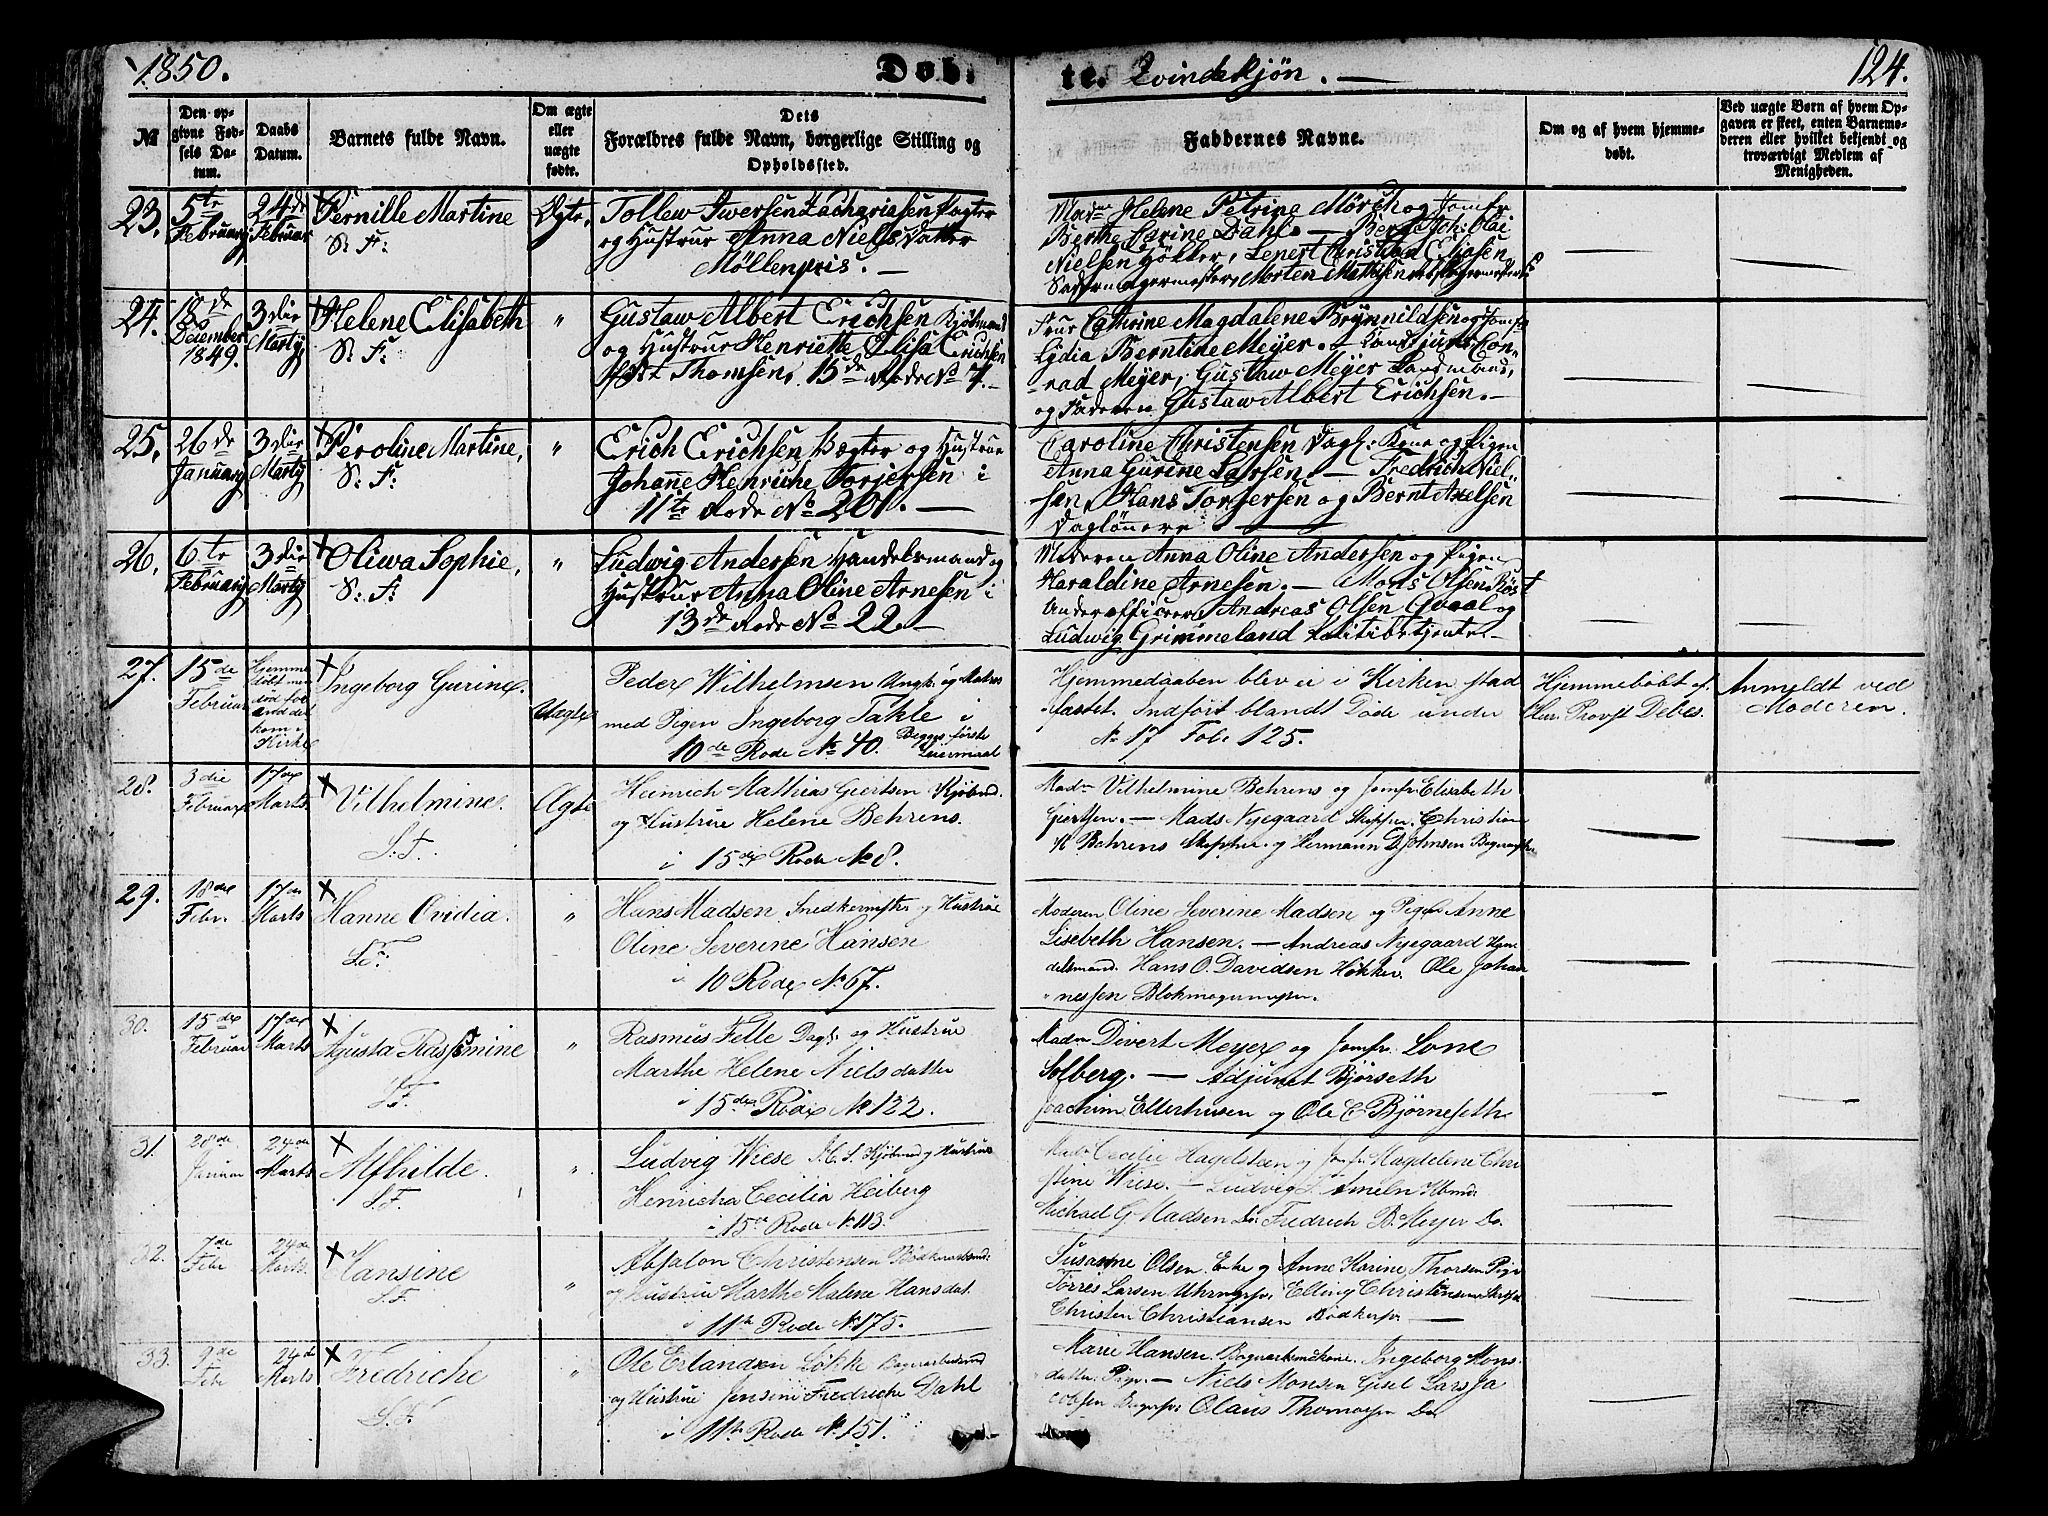 1850. Døb- te. Qvindekjøn. 124.
№
Den opgivne Fødsels Datum.
Daabs Datum.
Barnets fulde Navn.
Om ægte eller uægte fødte.
Dets Forældres fulde Navn, borgerlige Stilling og Opholdssted.
Faddernes Navne.
Om og af hvem hjemmedøbt.
Ved uægte Børn af hvem Opgaven er skeet, enten Barnemoderen eller hvilket bekjendt og troværdigt Medlem af Menigheden.
23. 5te Februar 24de Februar Pernille Martine S. F. Ægte.
Tollew Iwersen Zachariasen Pagter
og Hustrue Anna Niels Datter
Møllenpris.
Madm Helene Petrine Mörch og Jomfr
Berthe Larine Dahl. — Berg
Nielsen Høller, Lenert Christian Eliasen
Morten Mathisen
24. 18de December 1849. 3die Marty Helene Elisabeth S. F. "
Gustaw Albert Erichsen Kjøbmand
og Hustrue Henriette Elisa Erichsen
født Thomsen, 15de Rode No 7.
Frue Cathrine Magdalene Brynnildsen og Jomfr
Lydia Berntine Meyer. — Con-
rad Meyer, Gustaw Meyer
og Faderen Gustaw Albert Erichsen.
25. 26de January 3die Marty Peroline Martine, S. F. "
Erich Erichsen Pagter og Hustrue
Johanne Henriche Torjersen i
11te Rode No 201.
Caroline Christensen Dagl. Kone og Pigen
Anna Gurine Larsen. — Fredrich Niel-
sen, Hans Torgersen og Bernt Axelsen
Daglønnere
26. 6te February 3die Marty Oliwa Sophie, S. F. "
Ludwig Andersen Handelsmand og
Hustrue Anna Oline Arnesen i
13de Rode No 22.
Moderen Anna Oline Andersen og Pigen
Haraldine Arnesen. — Mons Olsen Røst
Underofficeer, Andreas Olsen Qvaal og
Ludwig Grimmeland Politibetjente.
27. 15de Februar Hjemmedøbt men død forend det kom i Kirke Ingeborg Gurine. Uægte
Peder Wilhelmsen Ungk. og Matros
med Pigen Ingeborg Takle i
10de Rode No 40. Begges første Leiermaal
Hjemmedaaben blev ei i Kirken stad
fæstet. Indført blandt Døde under
No 17 Fol. 125.
Hjemmedøbt af
Hr. Provst Debes.
Anmeldt ved
Moderen.
28. 3die Februar 17de Marts Vilhelmine. S. F. Ægte
Heinrich Mathias Giertsen Kjøbmd.
og Hustrue Helene Behrens.
i 15de Rode No 8.
Madm Vilhelmine Behrens og Jomfr. Elisabeth
Giertsen. — Mads Nyegaard Skipper. Christian
Behrens Skipper og Hermann D Johnsen
29. 18de Febr. 17de Marts Hanne Ovidia. S. F. "
Hans Madsen Snedkermstr og Hustrue
Oline Severine Hansen
i 10 Rode No 67.
Moderen Oline Severine Madsen og Pigen Anne
Lisebeth Hansen. — Andreas Nyegaard Han-
delsmand. Hans O. Davidsen Høkker. Ole Johan
nessen Blokmagermester.
30. 15de Februar 17de Marts Agusta Rassmine S. F. "
Rasmus Felle Dagl. og Hustrue
Marthe Helene Nielsdatter
i 15de Rode No 122.
Madm Divert Meyer og Jomfr. Lone
Solberg. — Adjunct Bjørseth
Joachim Ellerhusen og Ole E Bjørneseth
31. 28de Januar 24de Marts Alfhilde. S. F. "
Ludvig Wiese Kjøbmd og Hustrue
Henricha Cecilia Heiberg
i 15de Rode No 113.
Madm Cecilie Hagelsteen og Jomfr Magdelene Chri
stine Wiese. — Ludvig Ameln Kbmd.
Michael G Madsen Do. Fredrich B. Meyer Do.
32. 7de Febr 24de Marts Hansine S. F. "
Absalon Christensen Bødkersvend
og Hustrue Marthe Malene Hansdat.
i 11te Rode No 175.
Susanne Olsen Enke og Anne Karine Thorsen Pige
Torres Larsen Elling Christensen
Christen Christiansen Bødkersv.
33. 9de Febr 24de Marts Fredriche S. F. "
Ole Erlandsen Løkke
og Hustrue Jensine Fredriche Dahl
i 11te Rode No 151.
Marie Hansen. Ingeborg Mons-
datter Pige. — Niels Monsen Lars Ja
cobsen Olaus Thomassen Do.